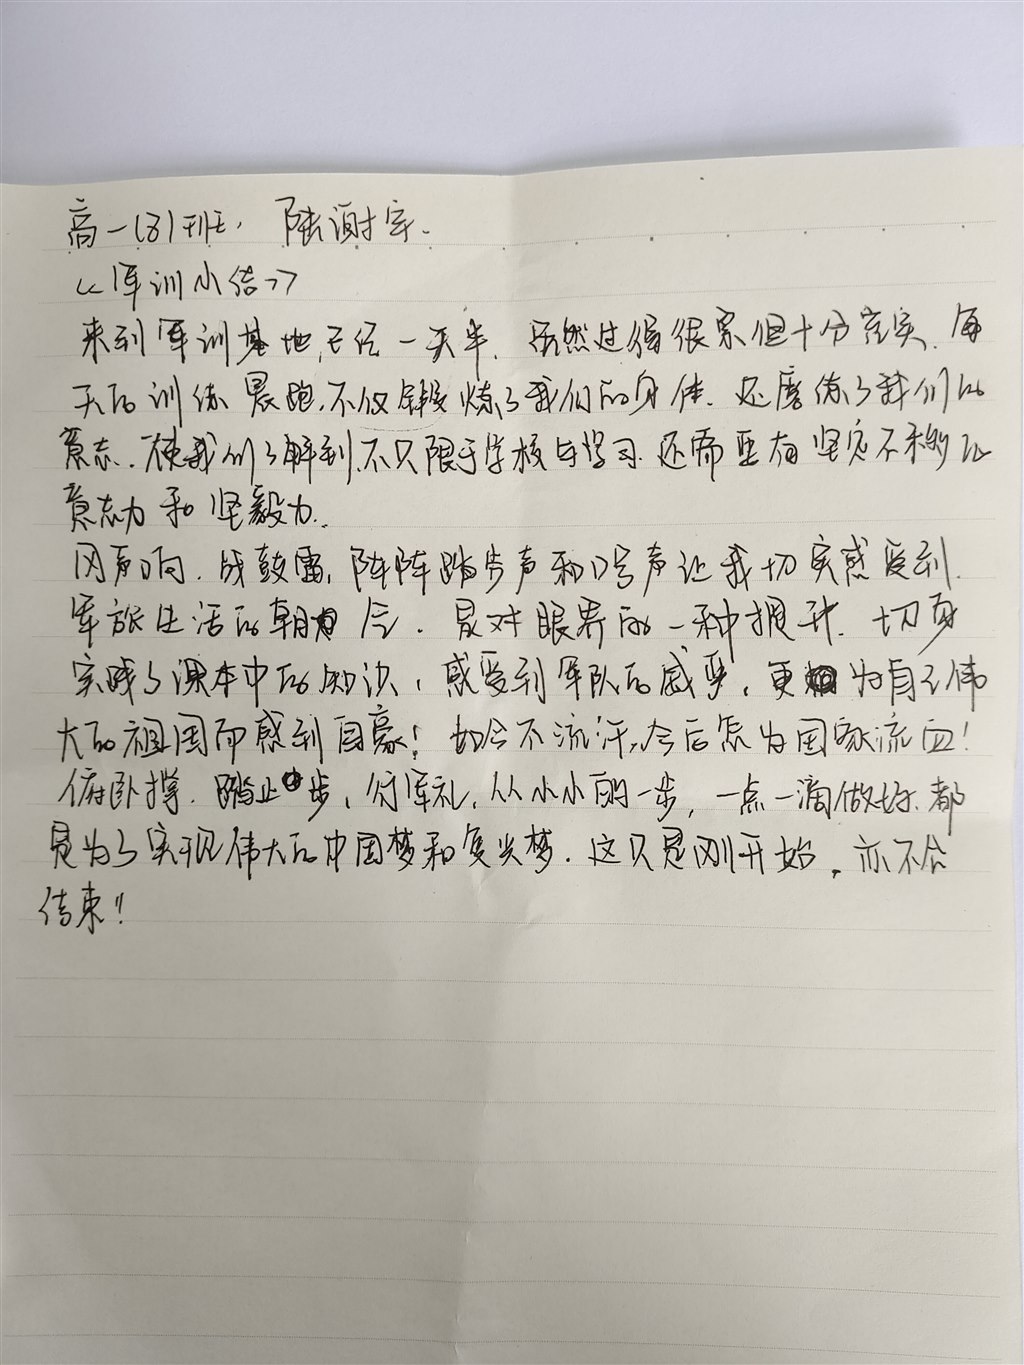 高一(8)班, 陆谢宇.
《军训小结》
来到军训基地,已经一天半. 虽然过得很累但十分充实. 每
天的训练 晨跑,不仅锻炼了我们的身体. 还磨练了我们的
意志. 使我们了解到,不只限于学校与学习. 还需要有坚定不移的
意志力和坚毅力.
风声响. 战鼓雷, 阵阵踏步声和口号声让我切实感受到
军旅生活的朝 . 是对眼界的一种提升. 切身
实践了课本中的知识, 感受到军队的威严, 更为自己伟
大的祖国而感到自豪! 如今不流汗,今后怎为国家流血!
俯卧撑. 踏步, 行军礼, 从小小的一步, 一点一滴做好. 都
是为了实现伟大的中国梦和复兴梦. 这只是刚开始. 亦不会
结束!!